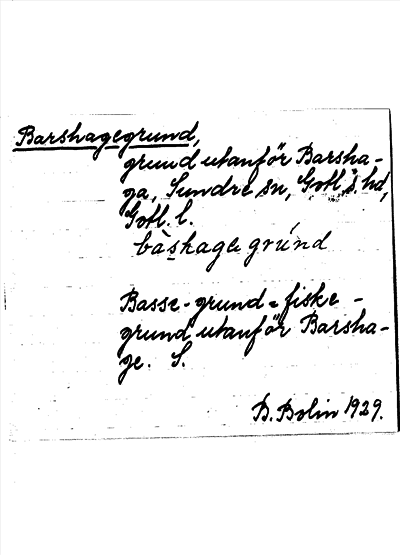 Barshagegrund,
grund utanför Barsha-
ga, Sundre sn, Gotl. s. hd,
Gotl. l.
båshage grúnd
Basse-grund = fiske-
grund utanför Barsha-
ge. S.
D. Bolin 1929.